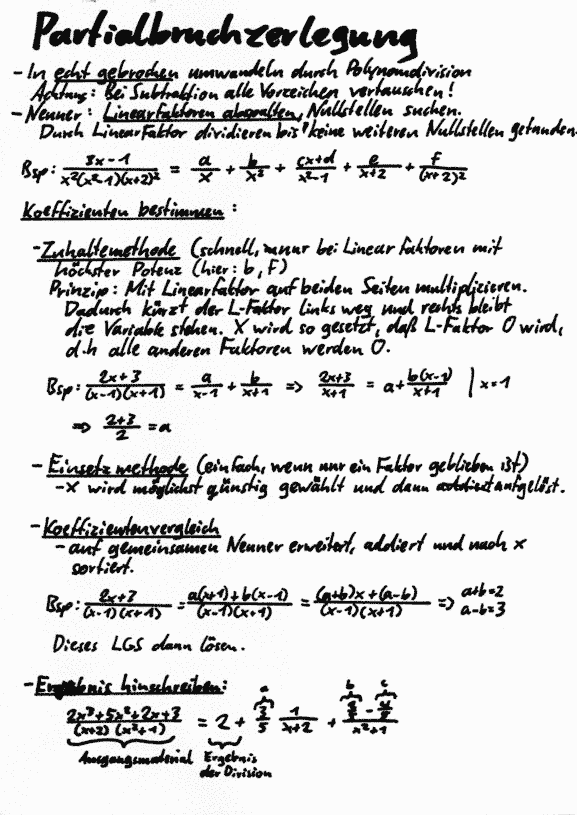 Partialbruchzerlegung
- In echt gebrochen umwandeln durch Polynomdivision
Achtung: Bei Subtraktion alle Vorzeichen vertauschen!
- Nenner: Linearfaktoren abspalten, Nullstellen suchen.
Durch Linearfaktor dividieren bis keine weiteren Nullstellen gefunden.
Bsp: (3x-1)/(x²(x²-1)(x+2)²) = a/x + b/x² + (cx+d)/(x²-1) + e/(x+2) + f/(x+2)²
Koeffizienten bestimmen:
- Zuhaltemethode (schnell, nur bei Linearfaktoren mit
höchster Potenz (hier: b, f)
Prinzip: Mit Linearfaktor auf beiden Seiten multiplizieren.
Dadurch kürzt der L-Faktor links weg und rechts bleibt
die Variable stehen. X wird so gesetzt, daß L-Faktor 0 wird,
d.h alle anderen Faktoren werden 0.
Bsp: (2x+3)/((x-1)(x+1)) = a/(x-1) + b/(x+1) => (2x+3)/(x+1) = a + b(x-1)/(x+1) | x=1
=> (2+3)/2 = a
- Einsetzmethode (einfach, wenn nur ein Faktor geblieben ist)
- X wird möglichst günstig gewählt und dann aufgelöst.
- Koeffizientenvergleich
- auf gemeinsamen Nenner erweitert, addiert und nach x
sortiert.
Bsp: (2x+3)/((x-1)(x+1)) = (a(x+1)+b(x-1))/((x-1)(x+1)) = ((a+b)x+(a-b))/((x-1)(x+1)) => a+b=2
a-b=3
Dieses LGS dann lösen.
- Ergebnis hinschreiben:
a b c
(2x³+5x²+2x+3)/((x+2)(x²+1)) = 2 + 3/5 1/(x+2)
Ausgangsmaterial Ergebnis
der Division